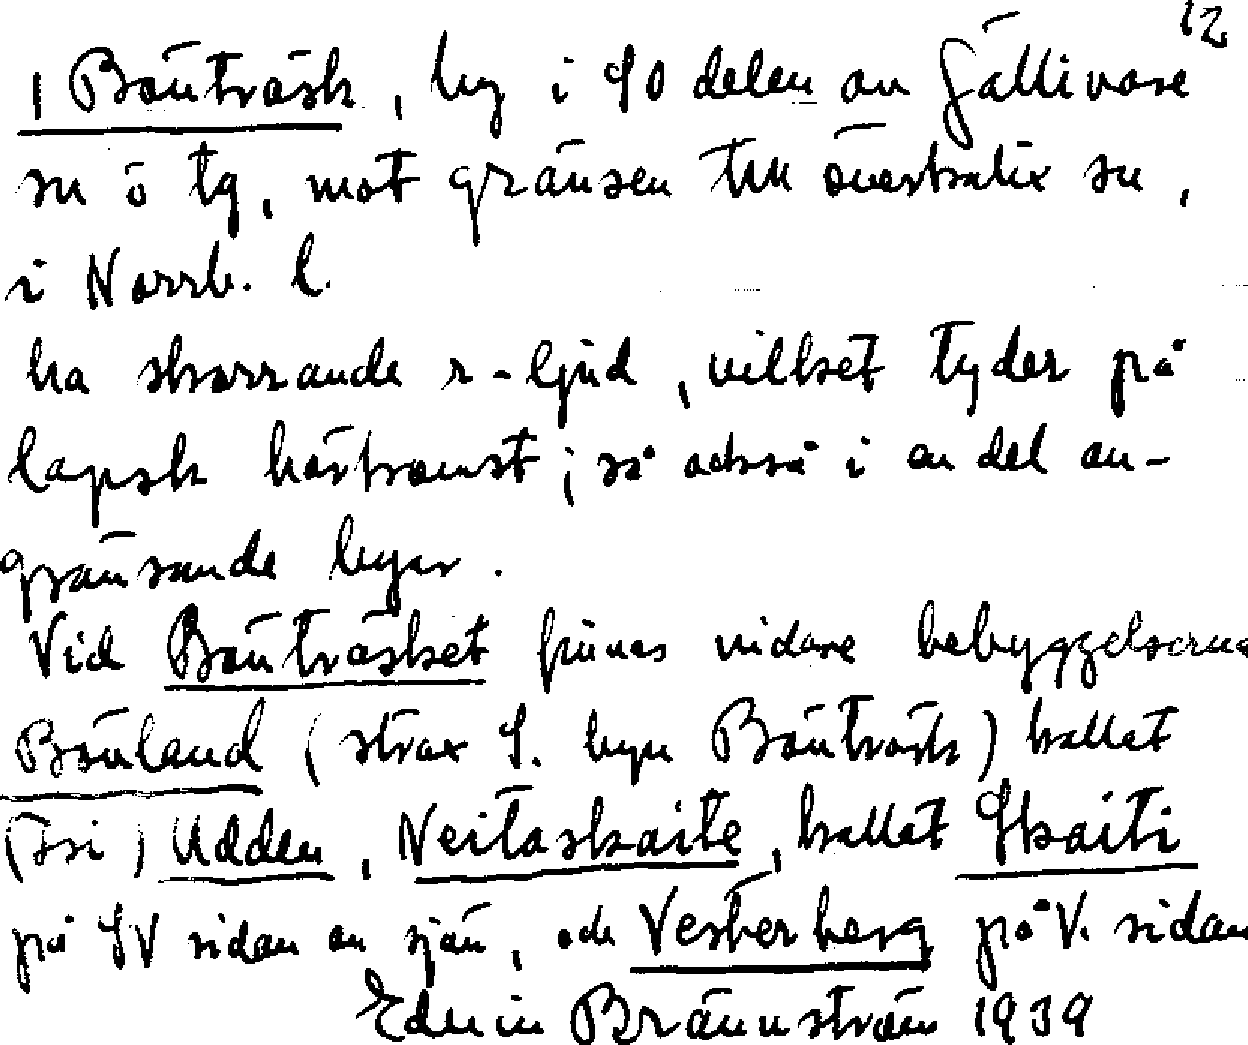 12
I Bönträsk, by i SO delen av Gällivare
sn o tg, mot gränsen till överkalix sn,
i Norrb. l.
ha skorrande r-ljud, vilket tyder på
lapsk härkomst; så också i en del an-
gränsande byar.
Vid Bönträsket finnes vidare bebyggelserna
Bönland (strax S. byn Bönträsk) kallat
Udden, Neitaskaite, kallat Skaiti
på SV sidan av sjön, och Vesterberg på V. sidan
Edvin Brännström 1939